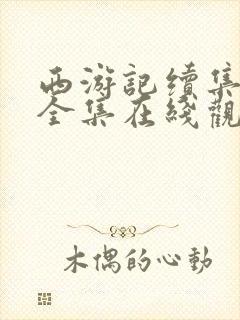 西游記續集
全集在綫觀
木偶的心動